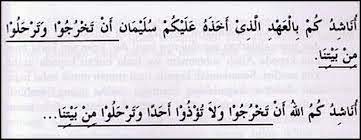 أُنَاشِدُ كُمْ بِالْعَهْدِ الَّذِىْ أَخَذَهُ عَلَيْكُمْ سُلَيْمَانُ أَنْ تَخْرُجُوْا وَتَرْحَلُوْا
مِنْ بَيْتِنَا.
أُنَاشِدُ كُمُ اللهَ أَنْ تَخْرُجُوْا وَلاَ تُوْذُوْا أَحَدًا وَتَرْحَلُوْا مِنْ بَيْتِنَا...